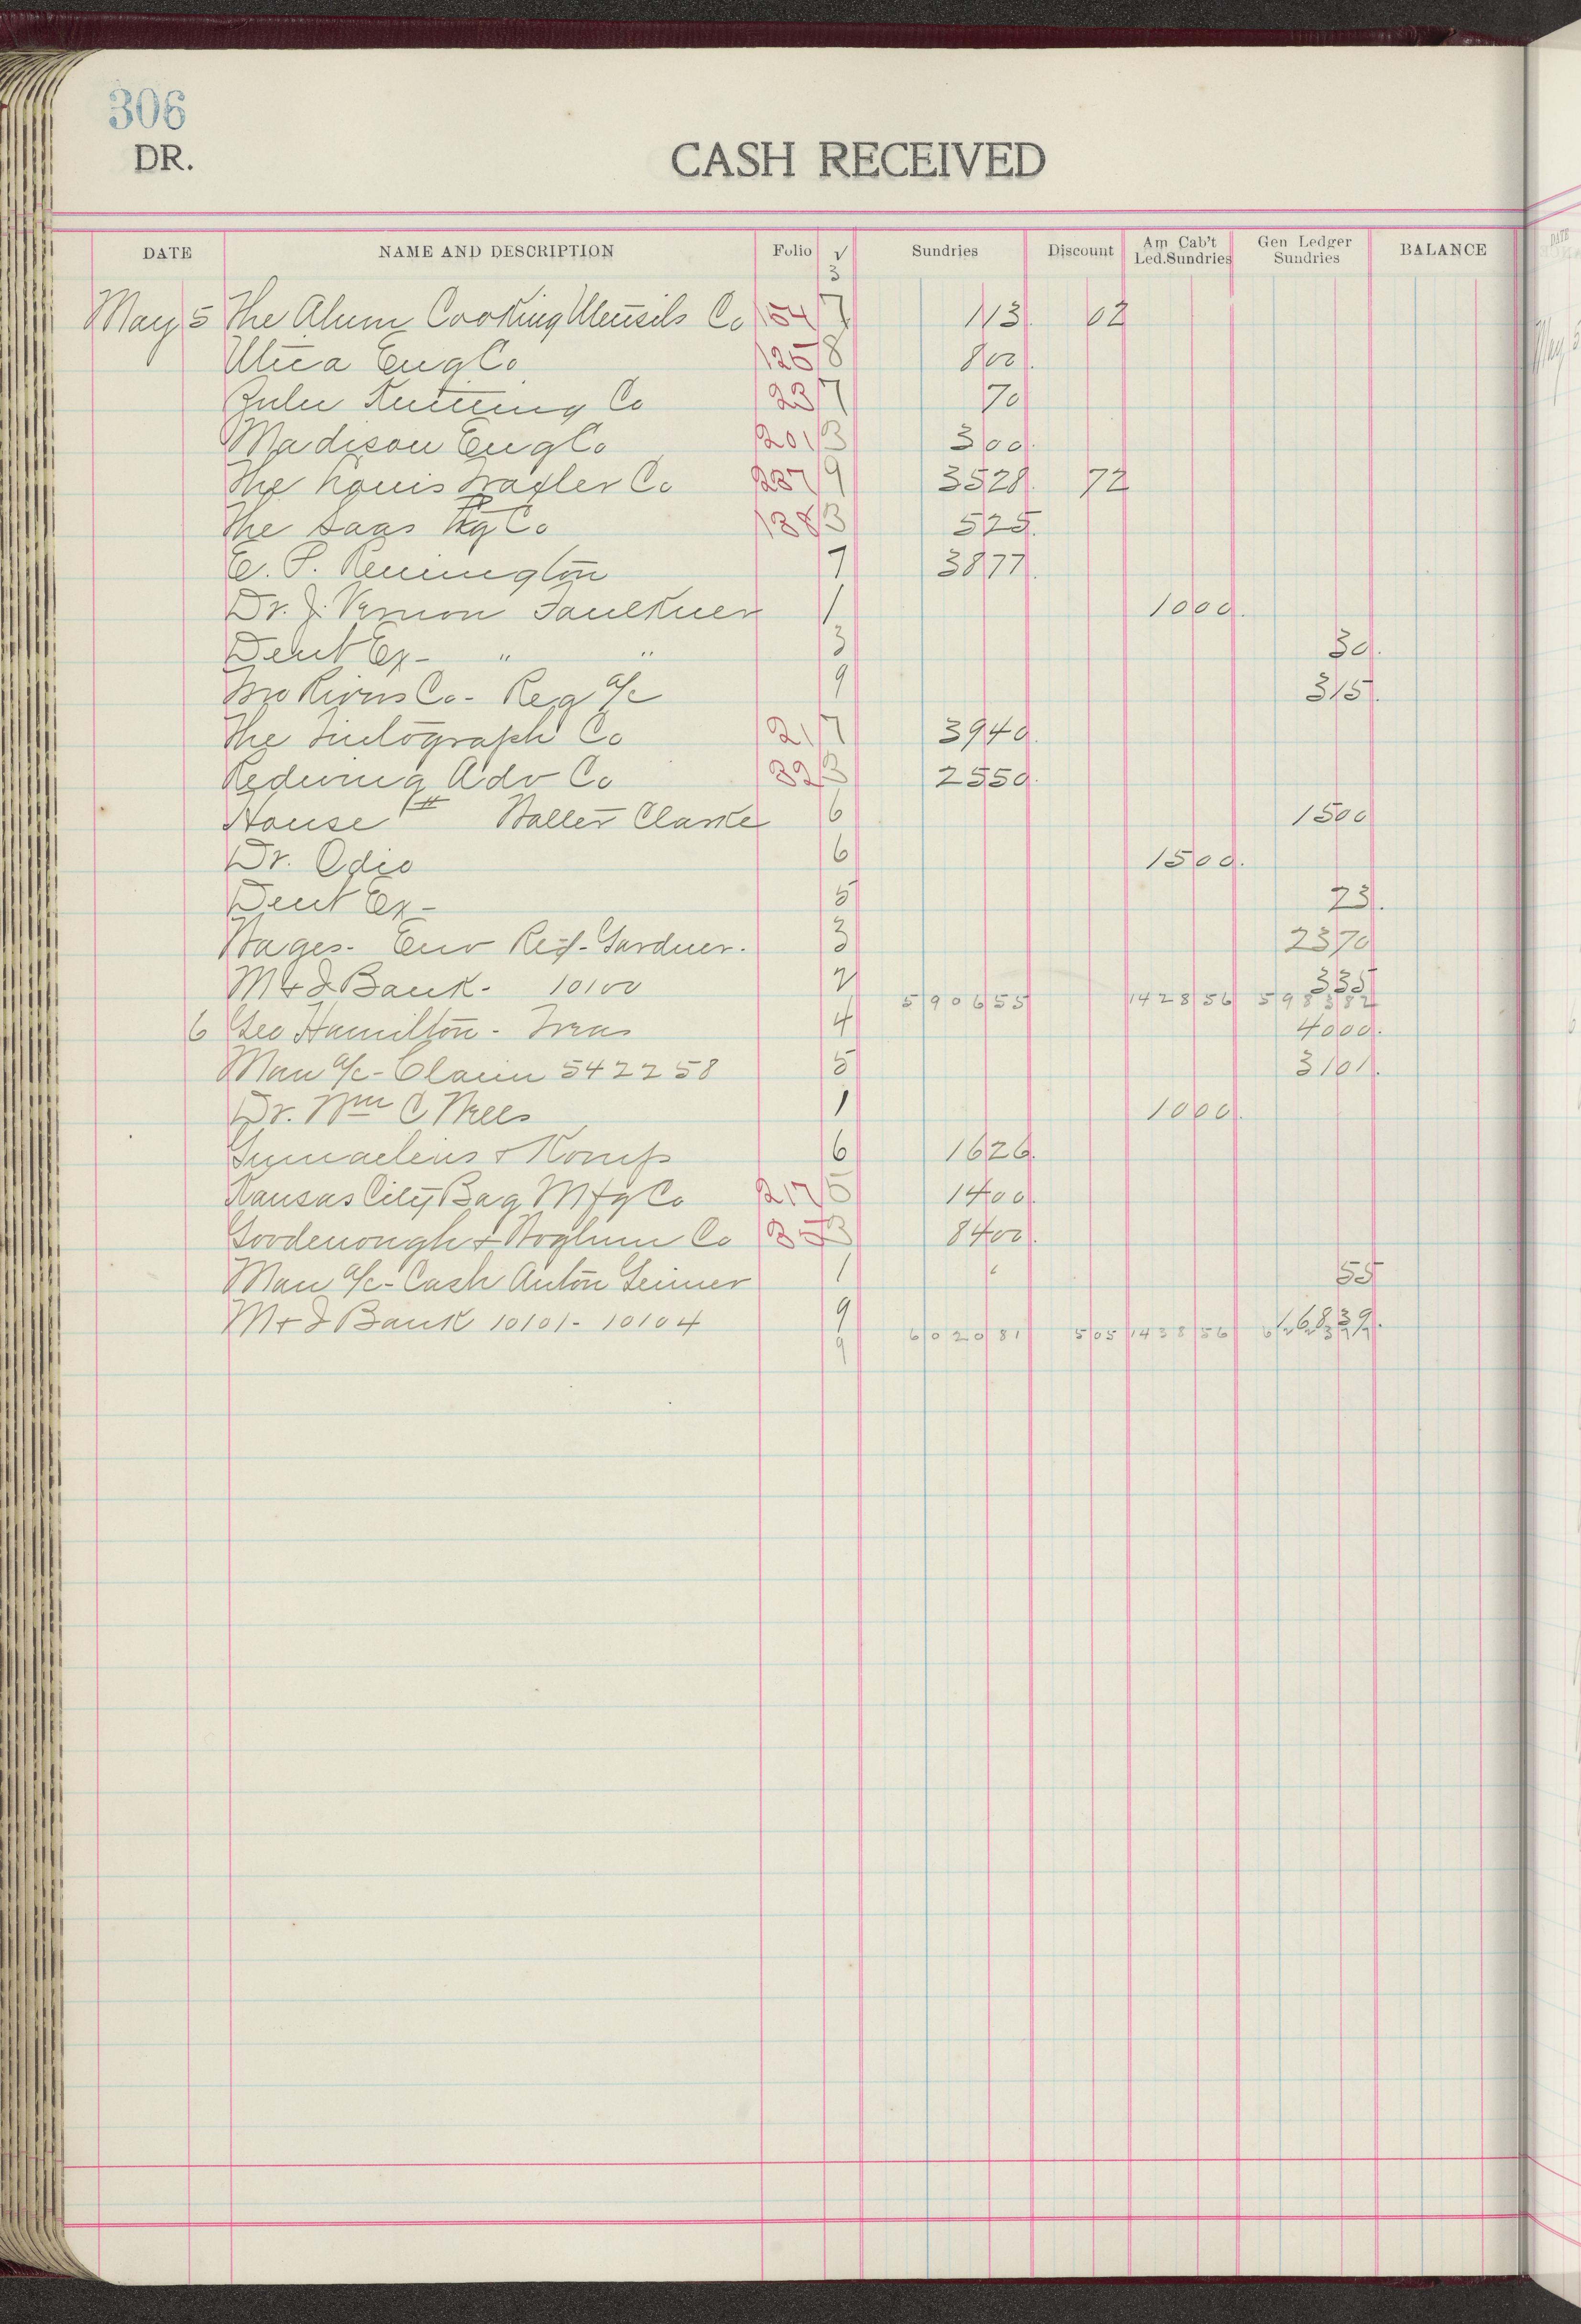 306
DR.
CASH RECEIVED
DATE NAME AND DESCRIPTION Folio √ Sundries Discount Am Cab't Led.Sundries Gen Ledger Sundries BALANCE
3
May 5 The Alum Cooking Utensils Co 154 7 113. 02
Utica Eng Co 125 8 800.
Zulu Knitting Co 23 7 70
Madison Eng Co 201 3 300.
The Louis Traxler Co 237 9 3528. 72
The Saas Co 138 3 525.
E. P. Remington 7 3877.
Dr. J. Vernon Faulkner 1 1000.
Dent Ex- " " 3 30.
Two Rivers Co- Reg a/c 9 315.
The Co 21 7 3940.
Redwing Adv Co 32 3 2550.
House # Walter Clarke 6 1500
Dr. Odio 6 1500.
Dent Ex- 5 23.
Wages- Env Ref- Gardner. 3 2370
M+I Bank- 10100 2 335
590655 142856 598382
6 Geo Hamilton- Treas 4 4000.
Man a/c- Claim 542258 5 3101.
Dr. Wm C 1 1000.
& Komp 6 1626.
Kansas City Bag Mfg Co 217 5 1400.
Goodenough & Woglum Co 35 3 8400.
Man a/c- Cash Anton 1 55
M+I Bank 10101-10104 9 16839.
9 602081 505 143856